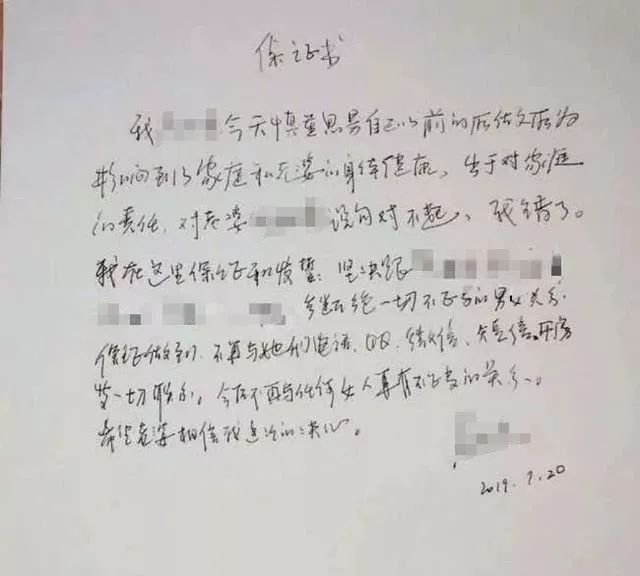 保证书
我 今天慎重思考自己以前的所做所为
影响到了家庭和老婆的身体健康,出于对家庭
的责任,对老婆 说句对不起,我错了。
我在这里保证和发誓:坚决跟
断绝一切不正当的男女关系.
保证做到,不再与她们电话、QQ、微信、短信、开房
等一切联系,今后不再与任何女人再有不正当的关系。
希望老婆相信我这次的决心。
2019.7.20